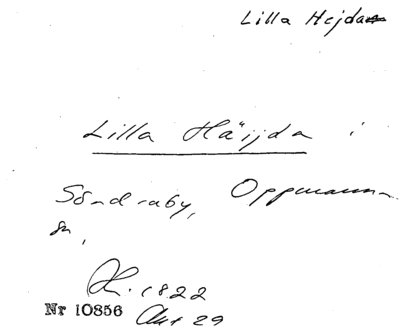 Lilla Hejda
Lilla Häijda i
Söndraby, Oppmanna
sn,
1822
Nr 10856 Akt 29